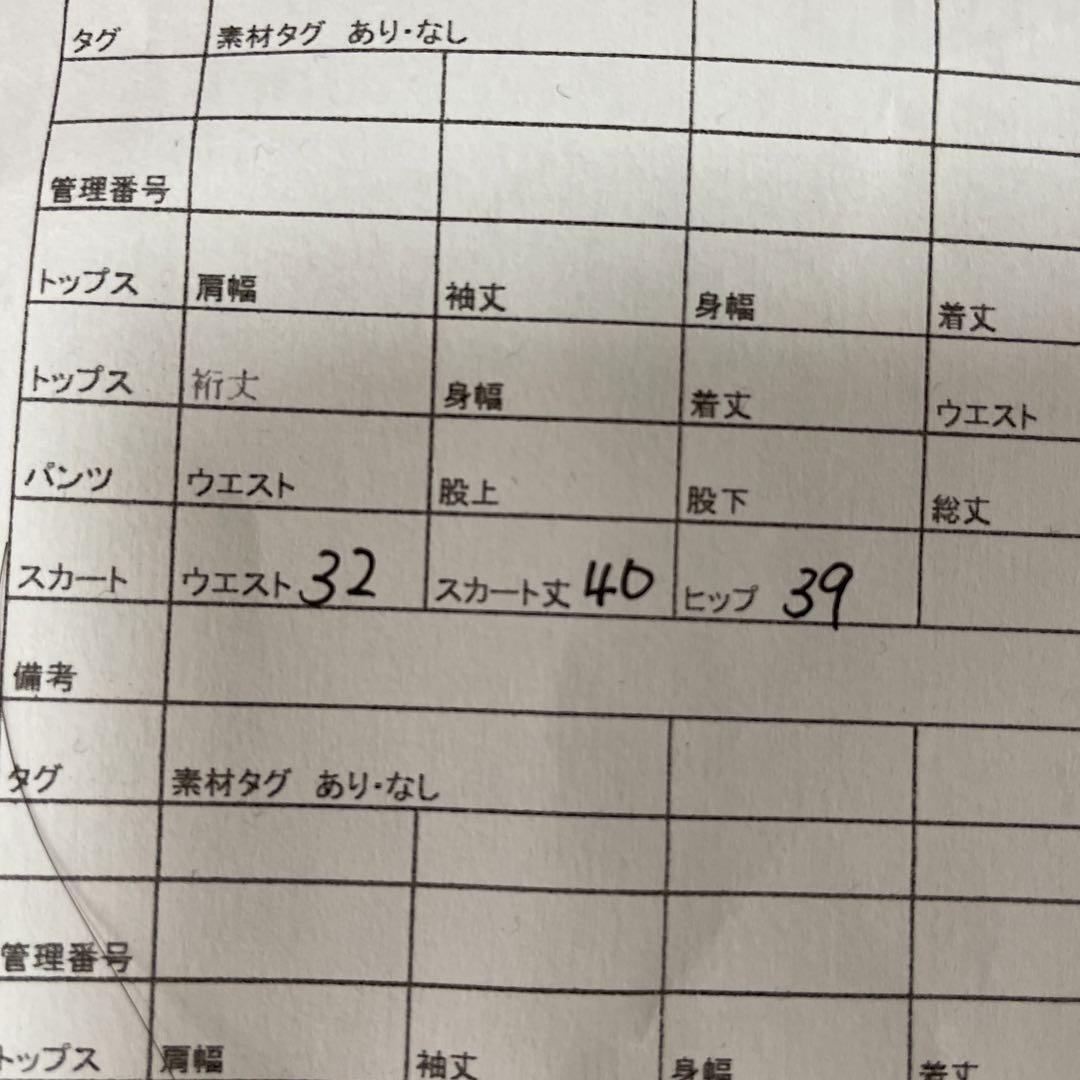 タグ 素材タグ あり・なし
管理番号
トップス 肩幅 袖丈 身幅 着丈
トップス 裄丈 身幅 着丈 ウエスト
パンツ ウエスト 股上 股下 総丈
スカート ウエスト 32 スカート丈 40 ヒップ 39
備考
タグ 素材タグ あり・なし
管理番号
トップス 肩幅 袖丈 身幅 着丈